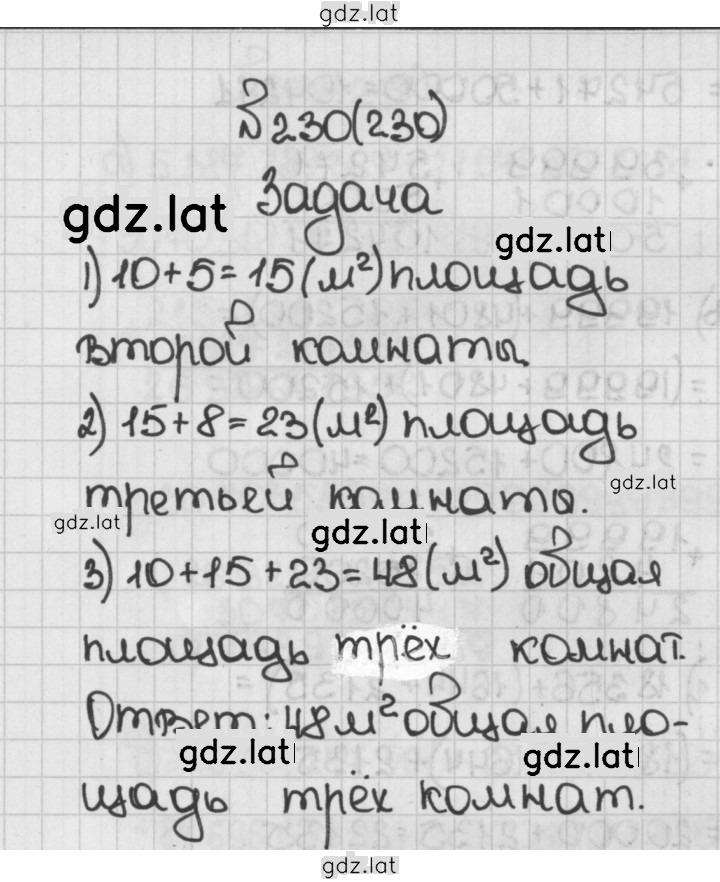 gdz.lat
№230(230)
Задача
gdz.lat
gdz.lat
1) 10+5=15(м²) площадь
второй комнаты.
2) 15+8=23(м²) площадь
третьей комнаты.
gdz.lat
gdz.lat
gdz.lat
3) 10+15+23=48(м²) общая
площадь трёх комнат.
Ответ: 48м² общая пло-
gdz.lat
gdz.lat
щадь трёх комнат.
gdz.lat